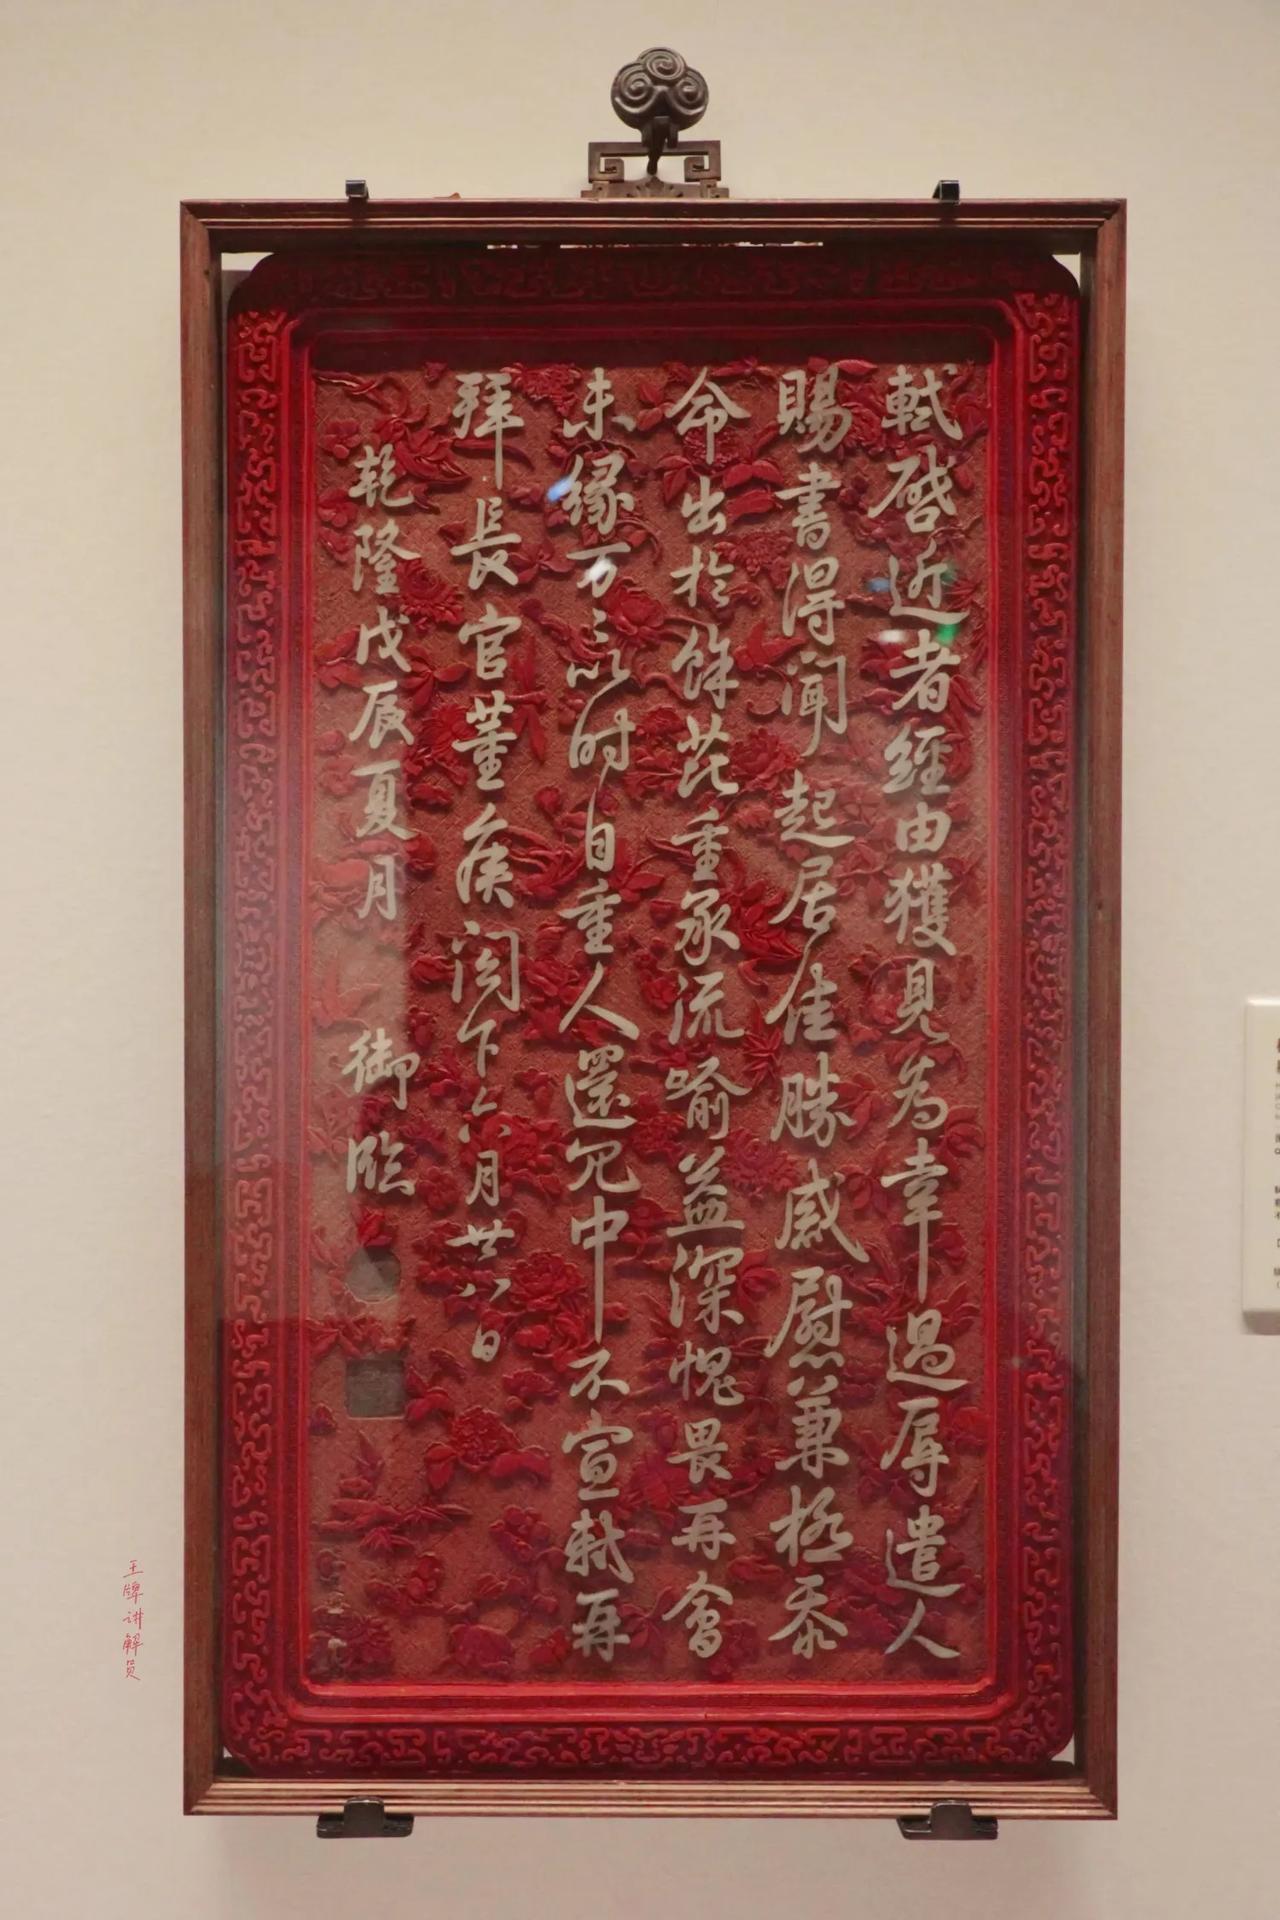 軾啓近者經由獲見為幸過辱遣人
賜書得聞起居佳勝感慰兼極忝
命出於餘芘重承流喻益深愧畏再會
未緣万万以时自重人還冗中不宣軾再
拜長官董侯閣下六月廿八日
乾隆戊辰夏月 御臨
王牌讲解员